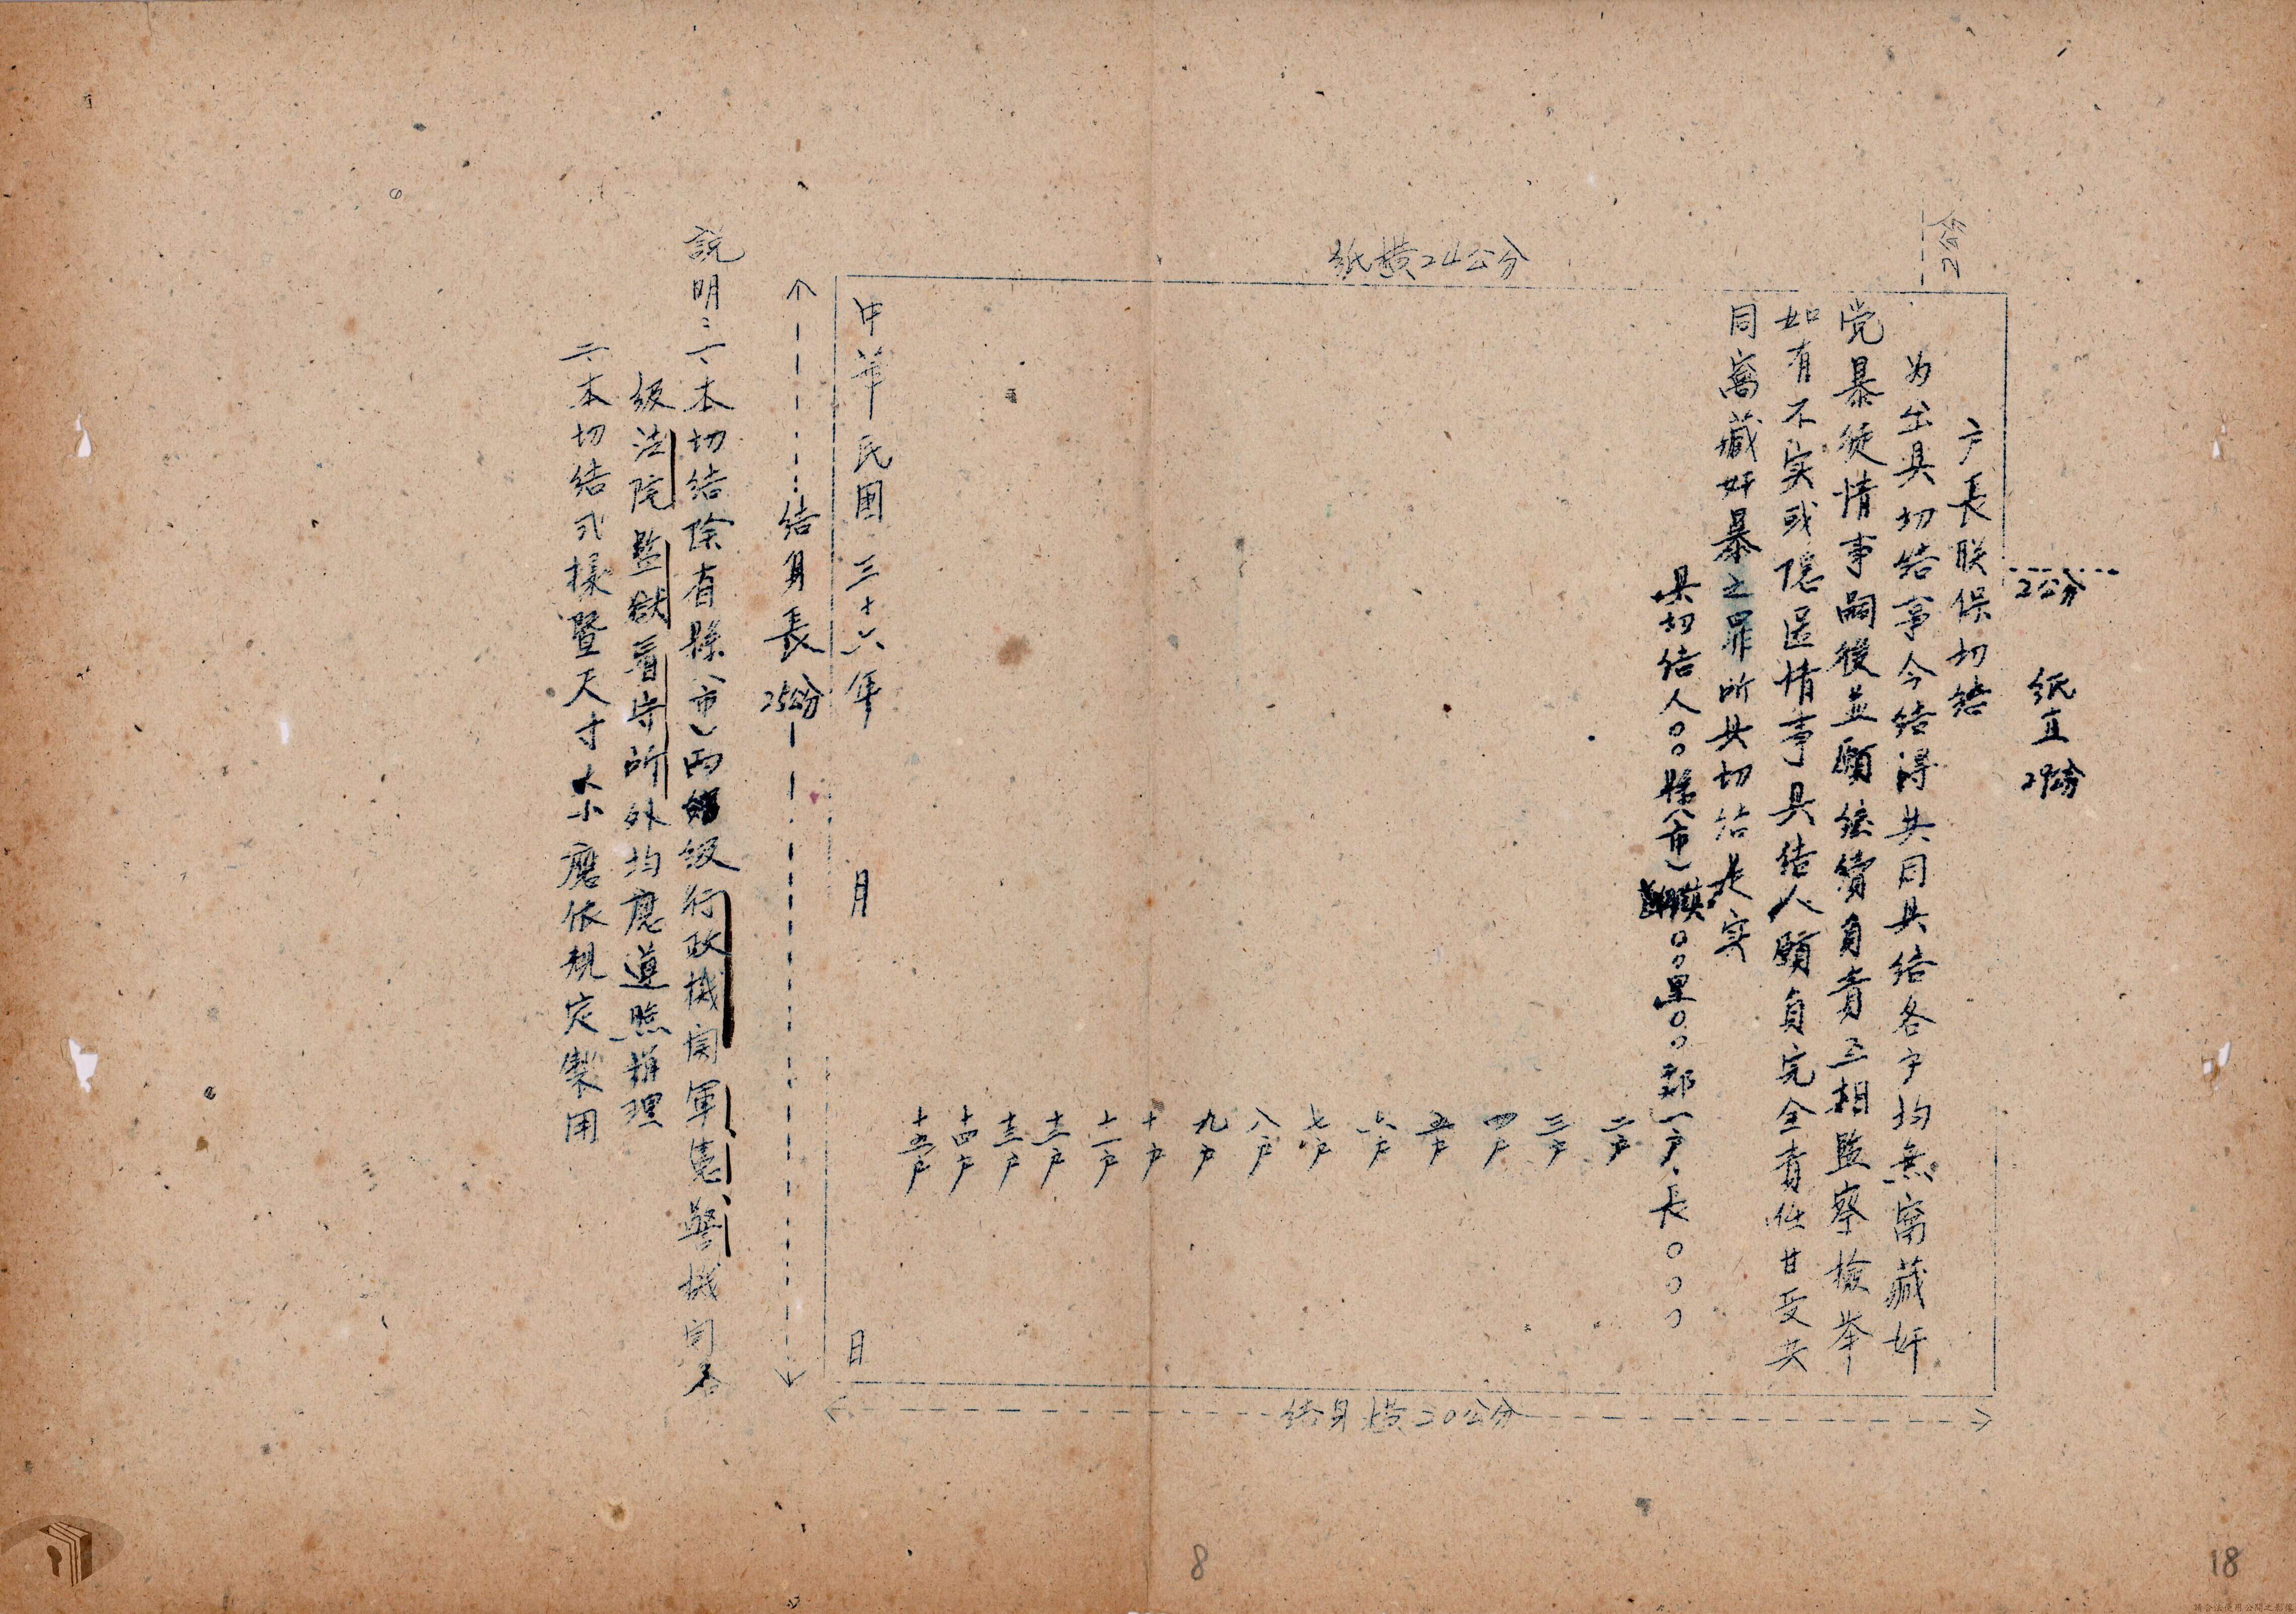 紙橫24公分
2公分
2公分
紙直29公分
户長联保切结
为出具切结事今结得共同具结各户均無窩藏奸
党暴徒情事嗣後並願继續負責互相監察檢举
如有不实或隱匿情事具结人願負完全責任甘受共
同窩藏奸暴之罪所具切结是实
具切结人○○縣(市)鎮○○里○○鄰一户長○○○
二户
三户
四户
五户
六户
七户
八户
九户
十户
十一户
十二户
十三户
十四户
十五户
中華民国三十六年 月 日
结身長25公分
结身橫20公分
説明:一、本切结除省縣(市)兩級行政機関軍、憲、警機関各
級法院監獄看守所外均應遵照辦理
二、本切结式樣暨尺寸大小應依規定製用
8
18